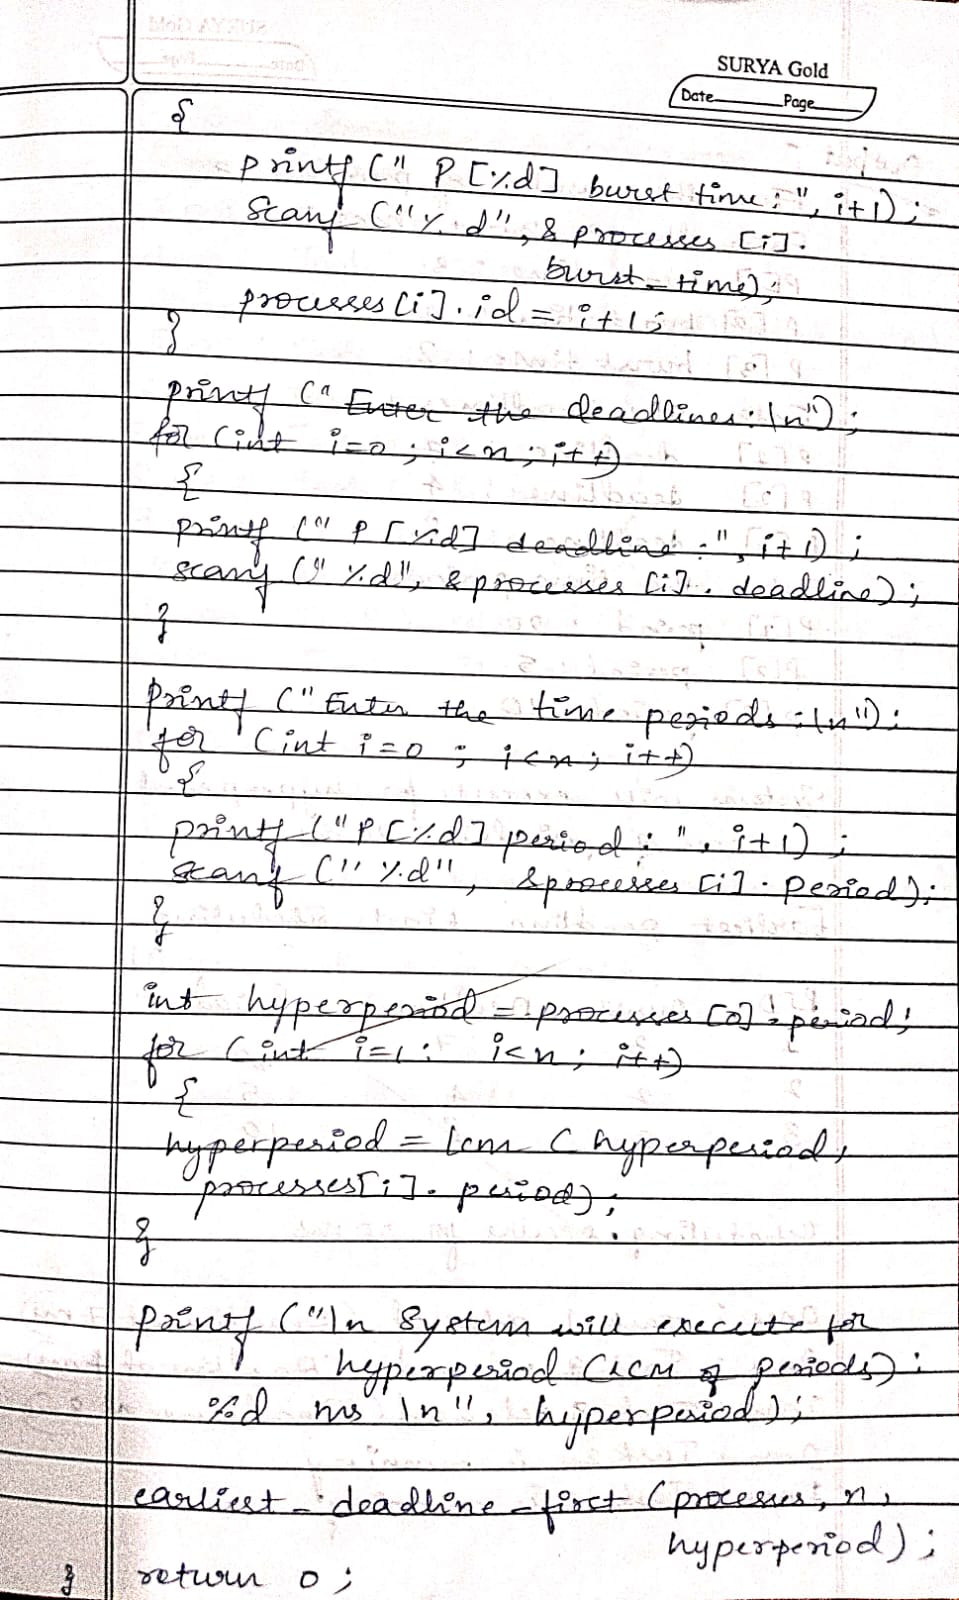 SURYA Gold
Date Page
{
printf (" P [%d] burst time : ", i+1) ;
scanf ("%d", & processes [i].
burst_time);
processes [i]. id = i+1;
}
printf (" Enter the deadlines : \n") ;
for (int i=0 ; i<n ; i++)
{
printf (" P [%d] deadline : ", i+1) ;
scanf (" %d", & processes [i]. deadline) ;
}
printf (" Enter the time periods : \n") ;
for (int i=0 ; i<n ; i++)
{
printf ("P [%d] period : ", i+1) ;
scanf (" %d", &processes [i] . period) ;
}
int hyperperiod = processes [0] . period;
for (int i=1 ; i<n ; i++)
{
hyperperiod = lcm (hyperperiod,
processes[i]. period) ;
}
printf ("\n System will execute for
hyperperiod (LCM of periods) :
%d ms \n", hyperperiod) ;
earliest_deadline_first (processes, n,
hyperperiod) ;
} return 0 ;